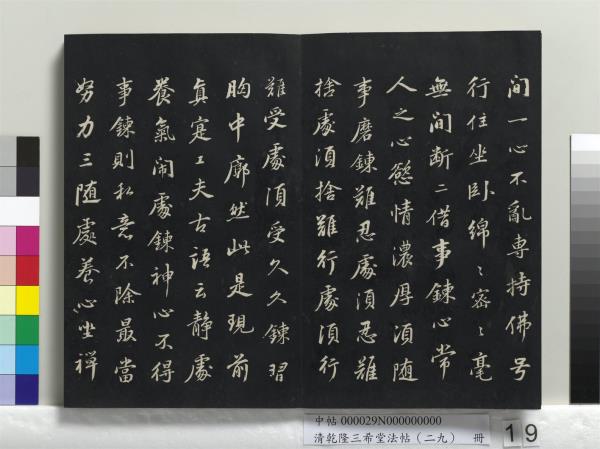 間一心不亂專持佛号
行住坐卧綿〻密〻毫
無間断二借事鍊心常
人之心慾情濃厚須随
事磨鍊難忍處須忍難
捨處須捨難行處須行
難受處須受久久鍊習
胸中廓然此是現前
真寔工夫古語云静處
養氣闹處鍊神心不得
事鍊則私意不除最當
努力三随處養心坐禅
中帖 000029N000000000
清乾隆三希堂法帖（二九） 冊
19